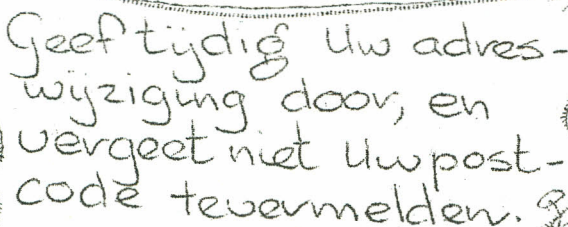 Geef tijdig Uw adres-
wijziging door, en
vergeet niet Uw post-
code te vermelden.